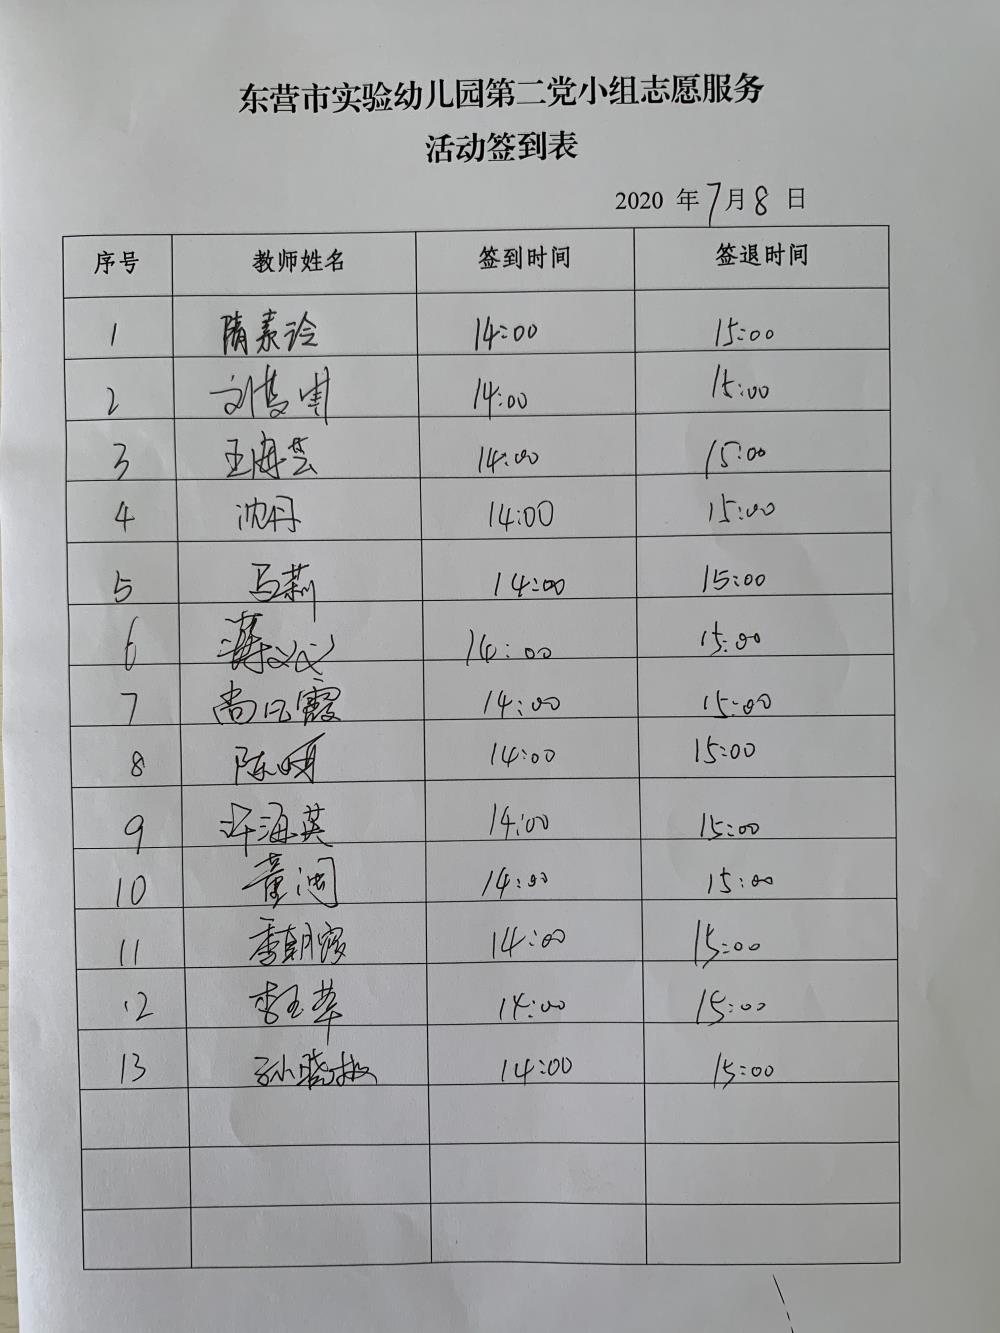 东营市实验幼儿园第二党小组志愿服务
活动签到表
2020 年 7 月 8 日
序号 教师姓名 签到时间 签退时间
1 隋素玲 14:00 15:00
2 14:00 15:00
3 王海芸 14:00 15:00
4 沈丹 14:00 15:00
5 马莉 14:00 15:00
6 14:00 15:00
7 尚凡霞 14:00 15:00
8 14:00 15:00
9 许海英 14:00 15:00
10 14:00 15:00
11 季朝霞 14:00 15:00
12 李玉萃 14:00 15:00
13 14:00 15:00